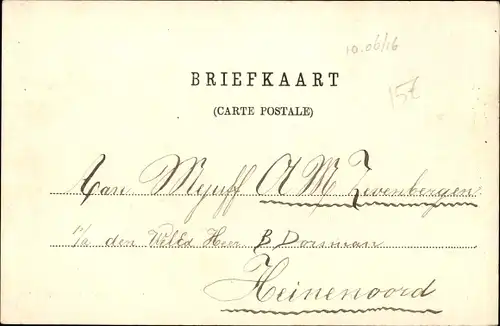 10.06/16
BRIEFKAART
15€
(CARTE POSTALE)
Aan Mejuff A M Zevenbergen
p/a den WelEd Heer B Dorsman
Heinenoord